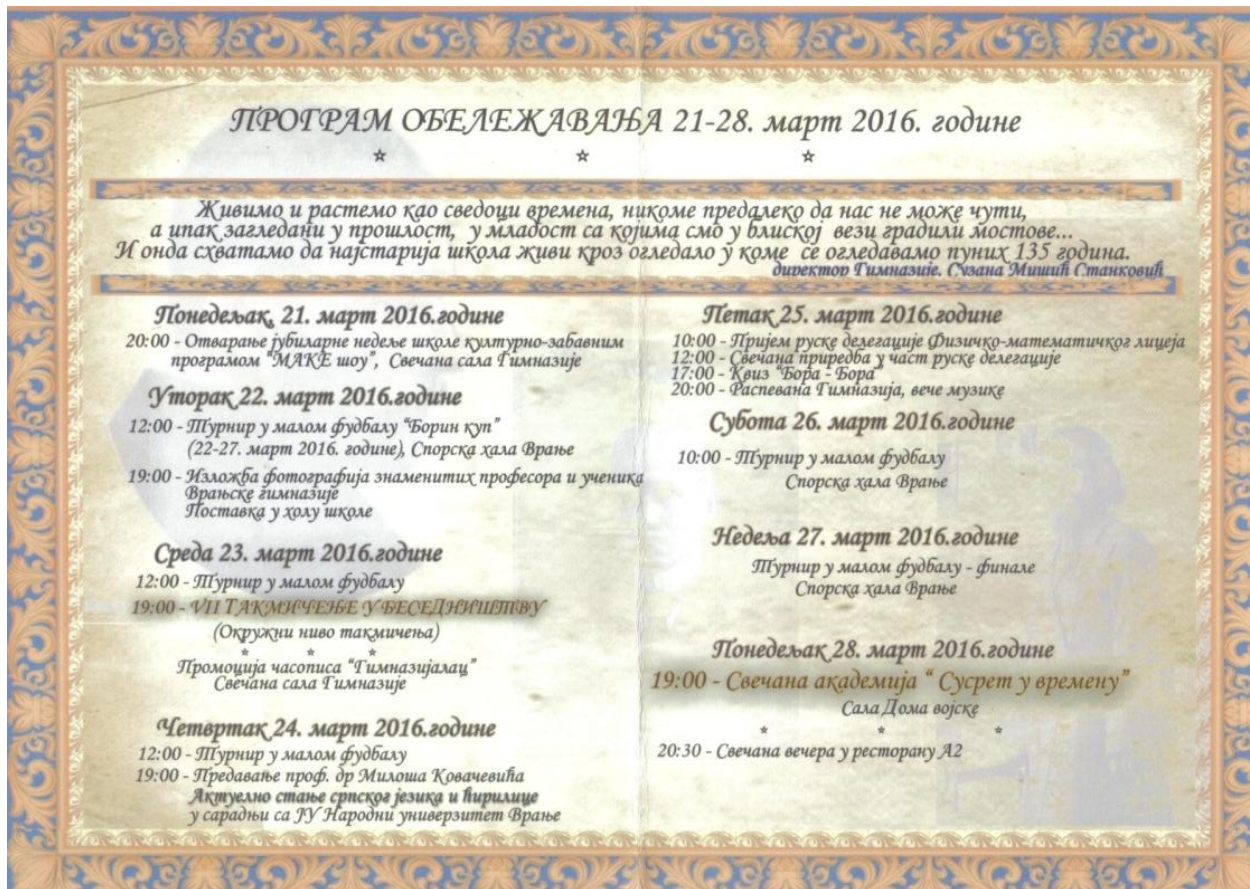 ПРОГРАМ ОБЕЛЕЖАВАЊА 21-28. март 2016. године
Живимо и растемо као сведоци времена, никоме предалеко да нас не може чути,
а ипак загледани у прошлост, у младост са којима смо у блиској вези градили мостове...
И онда схватамо да најстарија школа живи кроз огледало у коме се огледавамо пуних 135 година.
директор Гимназије, Сузана Мишић Станковић
Понедељак, 21. март 2016.године
20:00 - Отварање јубиларне недеље школе културно-забавним
програмом "МАКЕ шоу", Свечана сала Гимназије
Уторак 22. март 2016.године
12:00 - Турнир у малом фудбалу "Борин куп"
(22-27. март 2016. године), Спорска хала Врање
19:00 - Изложба фотографија знаменитих професора и ученика
Врањске гимназије
Поставка у холу школе
Среда 23. март 2016.године
12:00 - Турнир у малом фудбалу
19:00 - VII ТАКМИЧЕЊЕ У БЕСЕДНИШТВУ
(Окружни ниво такмичења)
Промоција часописа "Гимназијалац"
Свечана сала Гимназије
Четвртак 24. март 2016.године
12:00 - Турнир у малом фудбалу
19:00 - Предавање проф. др Милоша Ковачевића
Актуелно стање српског језика и ћирилице
у сарадњи са ЈУ Народни универзитет Врање
Петак 25. март 2016.године
10:00 - Пријем руске делегације Физичко-математичког лицеја
12:00 - Свечана приредба у част руске делегације
17:00 - Квиз "Бора - Бора"
20:00 - Распевана Гимназија, вече музике
Субота 26. март 2016.године
10:00 - Турнир у малом фудбалу
Спорска хала Врање
Недеља 27. март 2016.године
Турнир у малом фудбалу - финале
Спорска хала Врање
Понедељак 28. март 2016.године
19:00 - Свечана академија " Сусрет у времену"
Сала Дома војске
20:30 - Свечана вечера у ресторану А2